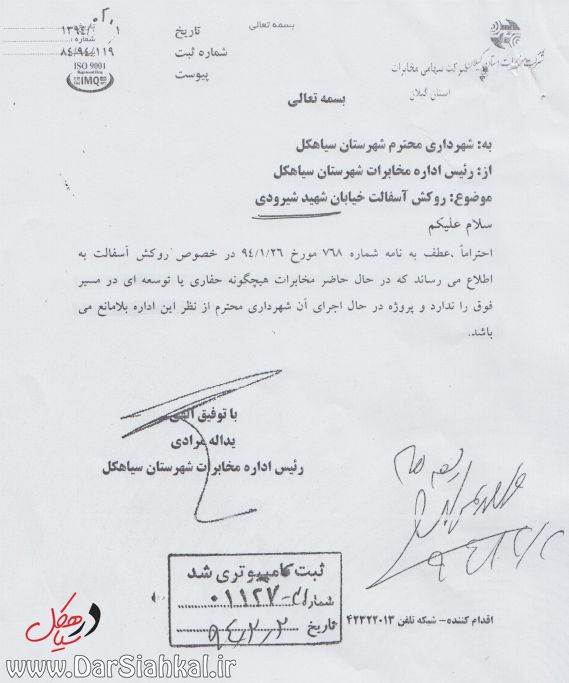 بسمه تعالی
شرکت سهامی مخابرات
استان گیلان
تاریخ
شماره ثبت ۸۴/۹۴/۱۱۹
پیوست
ISO 9001
IMQ
بسمه تعالی
به: شهرداری محترم شهرستان سیاهکل
از: رئیس اداره مخابرات شهرستان سیاهکل
موضوع: روکش آسفالت خیابان شهید شیرودی
سلام علیکم
احتراماً ،عطف به نامه شماره ۷۶۸ مورخ ۹۴/۱/۲۶ در خصوص روکش آسفالت به
اطلاع می رساند که در حال حاضر مخابرات هیچگونه حفاری یا توسعه ای در مسیر
فوق را ندارد و پروژه در حال اجرای آن شهرداری محترم از نظر این اداره بلامانع می
باشد.
با توفیق الهی
یداله مرادی
رئیس اداره مخابرات شهرستان سیاهکل
ثبت کامپیوتری شد
شماره
تاریخ ۹۴/۲/۲
اقدام کننده – شبکه تلفن ۴۲۳۲۲۰۱۳
در سیاهکل
www.DarSiahkal.ir